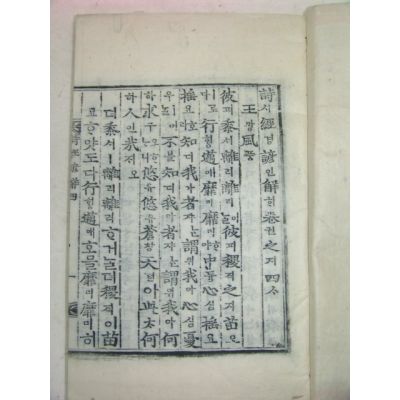 詩시經경諺언解ᄒᆡ卷권之지四ᄉᆞ
王왕風풍
彼피黍셔離리離리彼피稷직之지苗묘
로다行ᄒᆡᆼ邁매靡미靡미ᄒᆞ야中듕心심搖요
搖요호라知디我아者쟈ᄂᆞᆫ謂위我아心심憂
우ㅣ어ᄂᆞᆯ不블知디我아者쟈ᄂᆞᆫ謂위我아何
하求구오ᄒᆞᄂᆞ니悠유悠유蒼창天텬아此ᄎᆞ何
하人인哉ᄌᆡ오
뎌黍셔ㅣ離리離리ᄒᆞ거ᄂᆞᆯ뎌稷직이苗
묘ᄒᆞ얏도다行ᄒᆡᆼ邁매호믈靡미靡미히
詩經諺解四 一